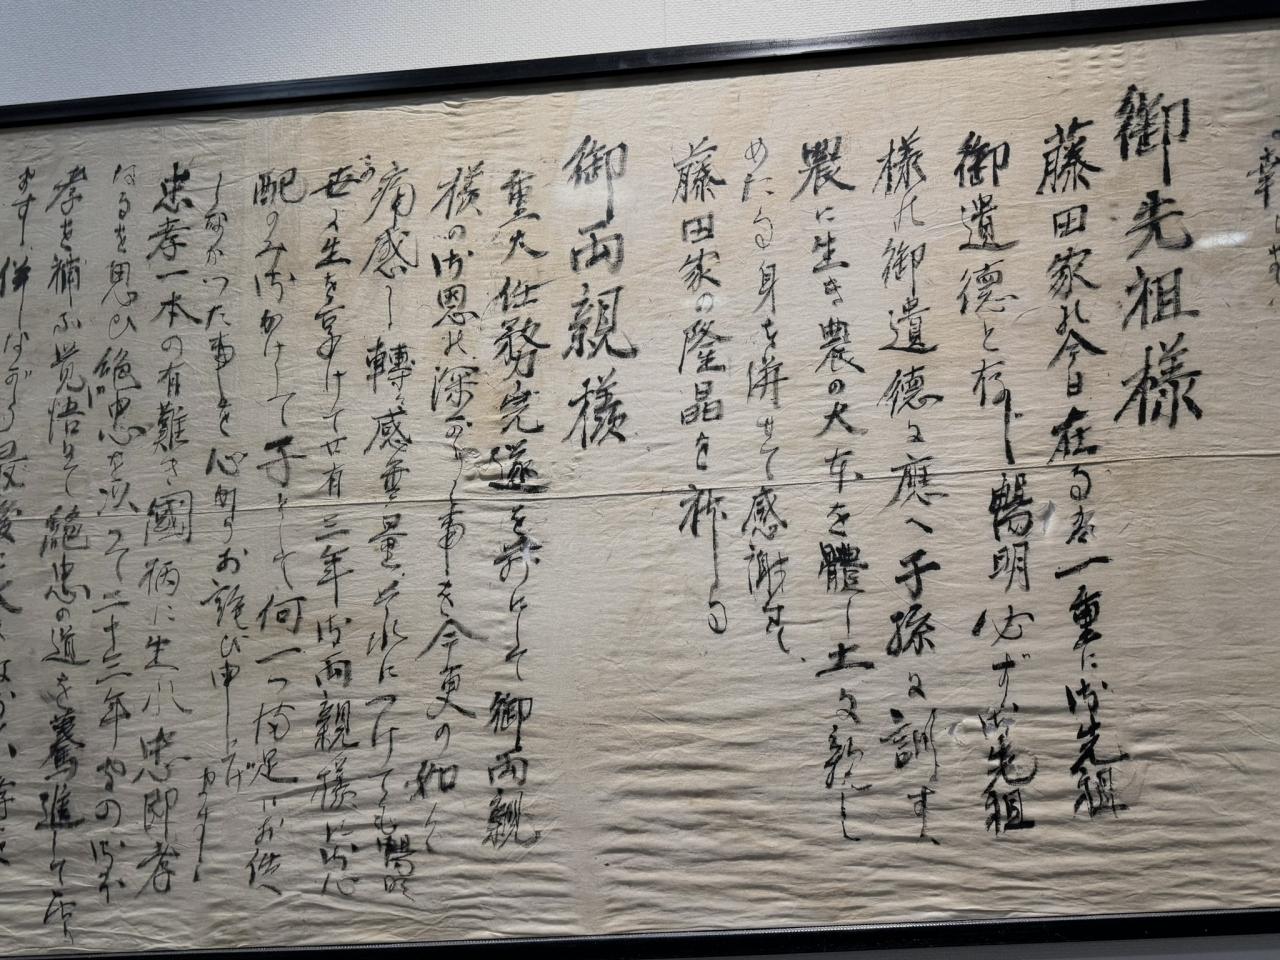 御先祖様
藤田家が今日在るは一重に御先祖
御遺徳と存じ 暢明必ず御先祖
様の御遺徳に應へ子孫に訓すへ
農に生き農の大本を體し土に親し
めたる身を併せて感謝せん
藤田家の隆晶を祈る
御両親様
重大仕務完遂を前にして御両親
様の御恩の深かりし事を今更の如く
痛感し轉た感無量 それにつけても暢明
世に生を享けて廿有三年御両親様に御心
配のみ御かけして子として何一つ満足にお仕へ
しなかつた事を心からお詫び申し上げます
忠孝一本の有難き國柄に生れ忠即孝
なるを思ひ 絶忠を以つて二十三年間の御不
孝を補ふ覚悟にて 絶忠の道を驀進して居り
ます 併しながら最後に